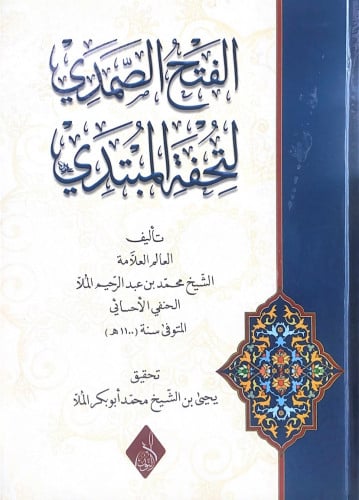 الفتح الصمدي
لتحفة المبتدي
تأليف
العالم العلامة
الشيخ محمد بن عبد الرحيم الملا
الحنفي الأحسائي
المتوفى سنة (١١٠٠ هـ)
تحقيق
يحيى بن الشيخ محمد أبو بكر الملا